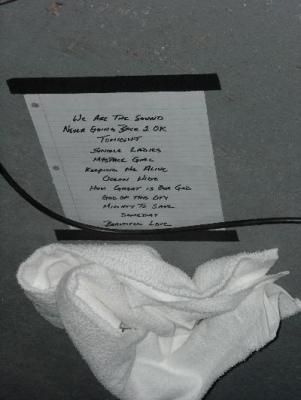 We Are The Sound
Never Going Back 2 OK
Tonight
Single Ladies
MySpace Girl
Keeping Me Alive
Ocean Wide
How Great is Our God
God of this City
Mighty To Save
Someday
Beautiful Love